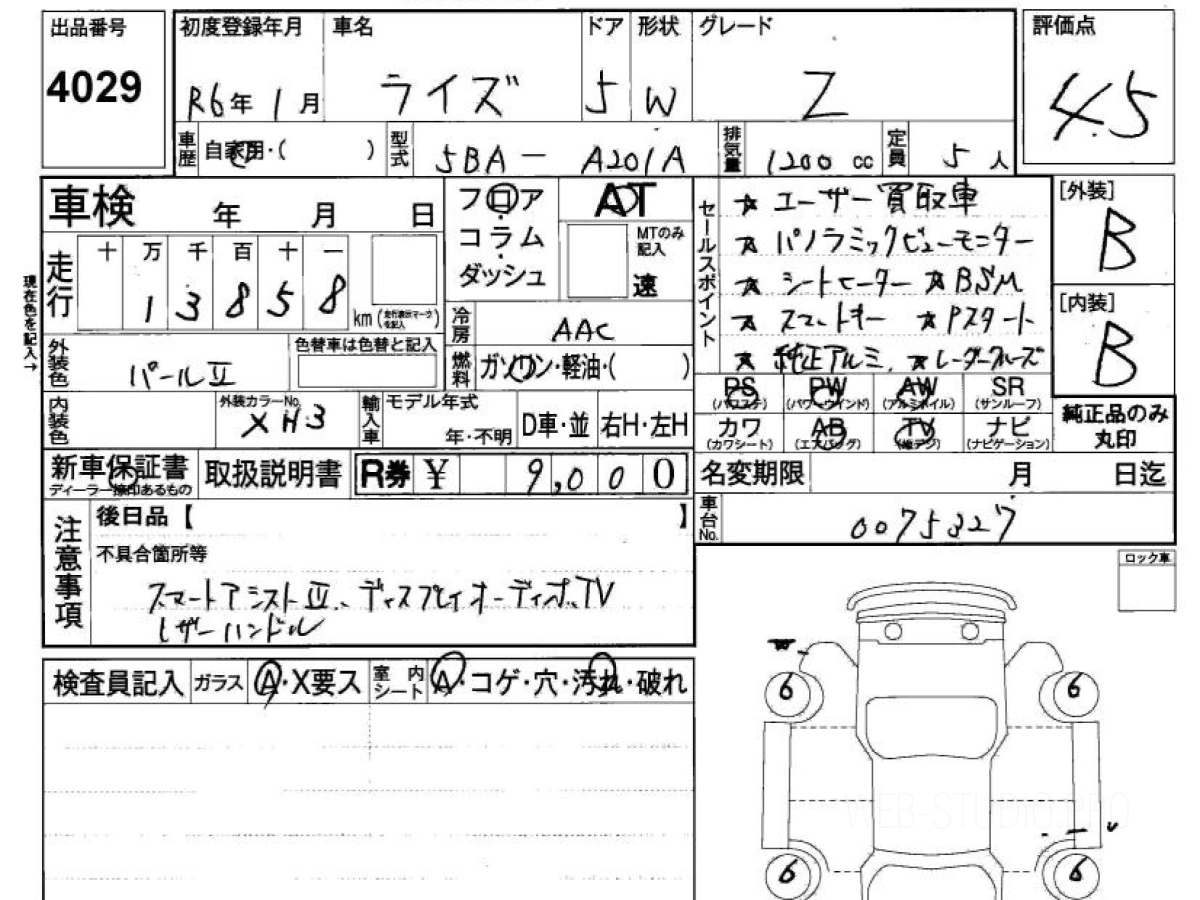 出品番号 初度登録年月 車名 ドア 形状 グレード 評価点
4029 R6年 1月 ライズ 5 W Z 4.5
車歴 自家用・( ) 型式 5BA-A201A 排気量 1200 cc 定員 5 人
車検 年 月 日
フロア
コラム
ダッシュ
AT
MTのみ記入
速
セールスポイント
★ ユーザー買取車
★ パノラミックビューモニター
★ シートヒーター ★BSM
★ スマートキー ★Pスタート
★ 純正アルミ ★レーダークルーズ
[外装]
B
[内装]
B
現在色を記入→
走行 十 万 千 百 十 一
1 3 8 5 8 km (走行表示マークを記入)
冷房 AAC
外装色 パールⅡ 色替車は色替と記入
燃料 ガソリン・軽油・( )
PS (パワステ) PW (パワーウインド) AW (アルミホイル) SR (サンルーフ)
カワ (カワシート) AB (エアバッグ) TV (地デジ) ナビ (ナビゲーション)
純正品のみ丸印
内装色 外装カラーNo. XH3 輸入車 モデル年式 年・不明 D車・並 右H・左H
新車保証書 ディーラー捺印あるもの 取扱説明書 R券 ¥ 9,000
名変期限 月 日迄
車台No. 0075327
注意事項
後日品【 】
不具合箇所等
スマートアシストⅢ、ディスプレイオーディオ、TV
レザーハンドル
ロック車
検査員記入 ガラス A・X要ス 室内シート A・コゲ・穴・汚れ・破れ
W
6 6
WEB-STUDIO.PRO
6 6